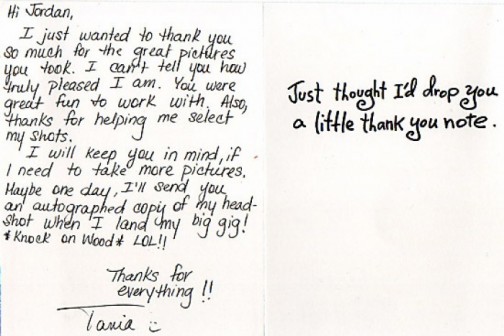 Hi Jordan,
I just wanted to thank you
so much for the great pictures
you took. I can't tell you how
truly pleased I am. You were
great fun to work with. Also,
thanks for helping me select
my shots.
I will keep you in mind, if
I need to take more pictures.
Maybe one day, I'll send you
an autographed copy of my head-
shot when I land my big gig!
*Knock on Wood* LOL!!
Thanks for
everything !!
Tania :)
Just thought I'd drop you
a little thank you note.